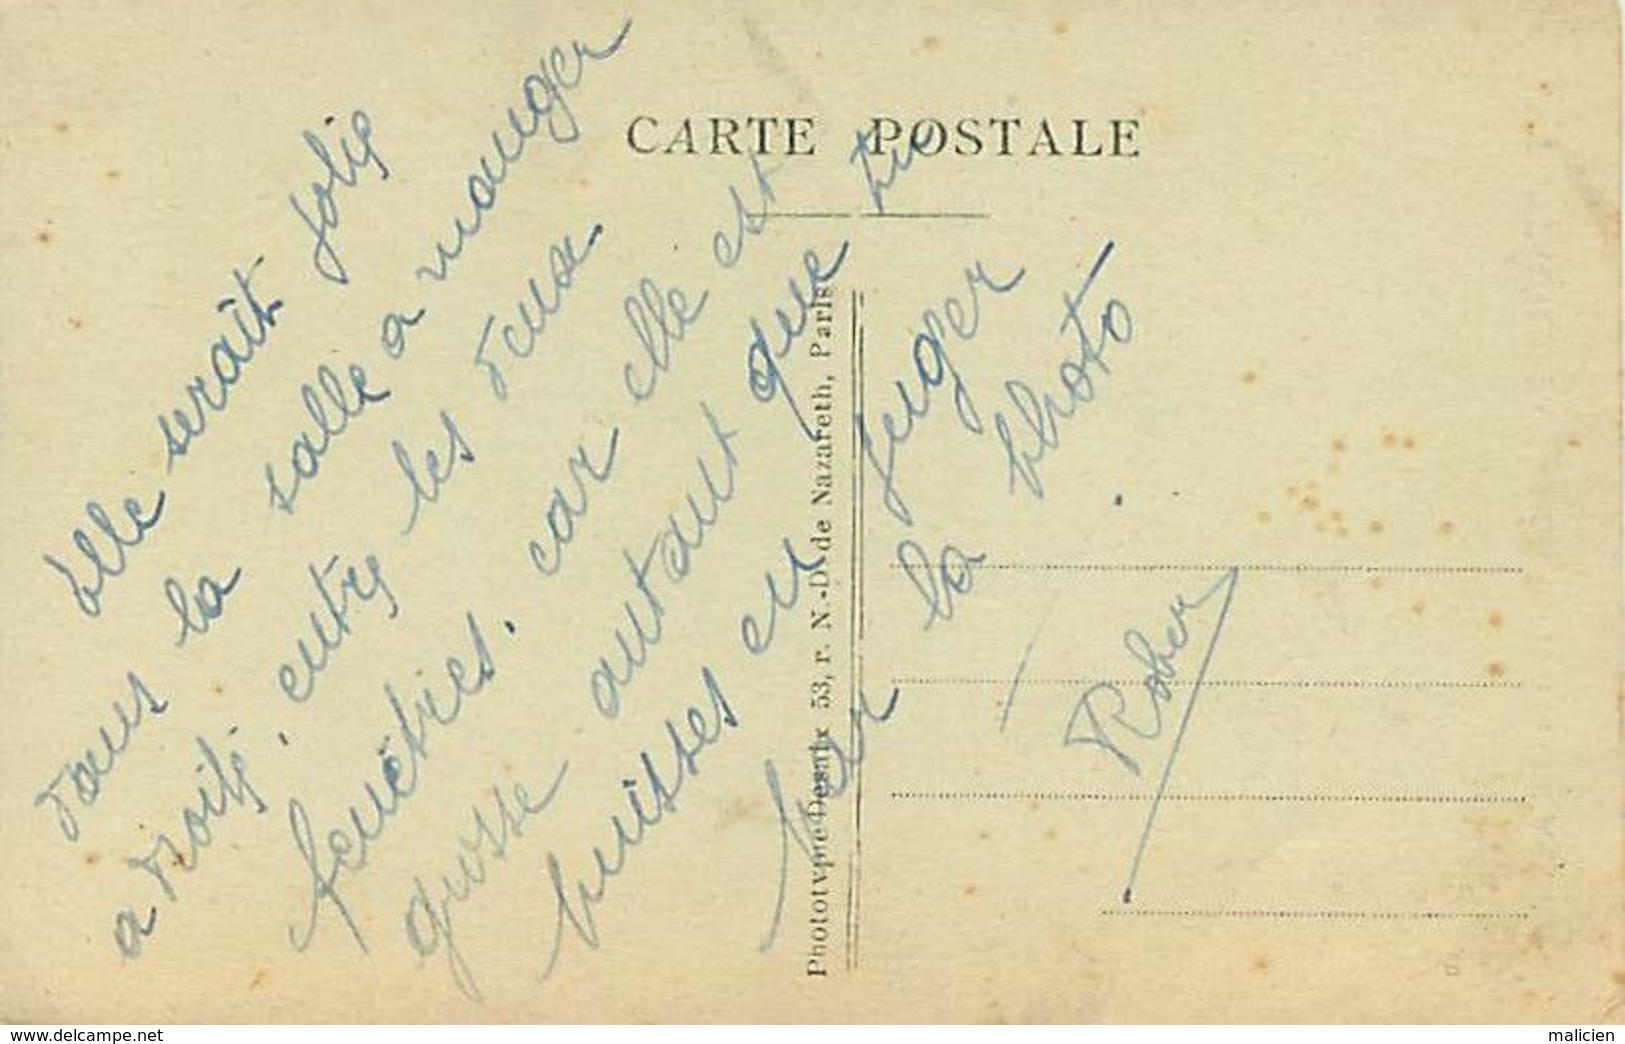 CARTE POSTALE
Elle serait jolie
dans la salle a manger
a droite, entre les deux
fenêtres. car elle est
grosse autant que tu
puisses en juger
par la photo
Rober
Phototypie Desaix 53, r. N.-D. de Nazareth, Paris
www.delcampe.net
malicien